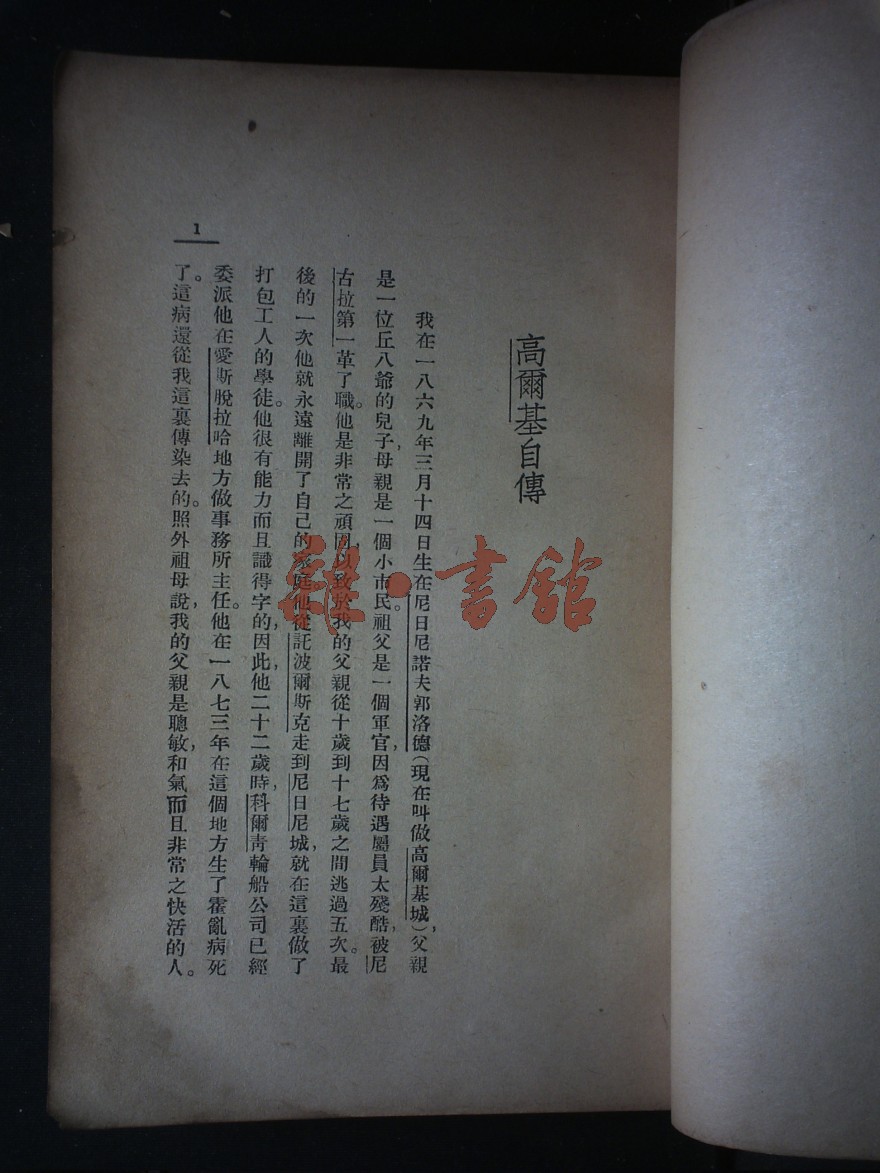 高爾基自傳
我在一八六九年三月十四日生在尼日尼諾夫郭洛德(現在叫做高爾基城)，父親
是一位丘八爺的兒子，母親是一個小市民。祖父是一個軍官，因爲待遇屬員太殘酷，被尼
古拉第一革了職。他是非常之頑固，以致於我的父親從十歲到十七歲之間逃過五次。最
後的一次他就永遠離開了自己的家庭，他從託波爾斯克走到尼日尼城，就在這裏做了
打包工人的學徒。他很有能力而且識得字的，因此他二十二歲時，科爾靑輪船公司已經
委派他在愛斯脫拉哈地方做事務所主任。他在一八七三年在這個地方生了霍亂病死
了。這病還從我這裏傳染去的。照外祖母說，我的父親是聰敏，和氣而且非常之快活的人。
1
雜·書館